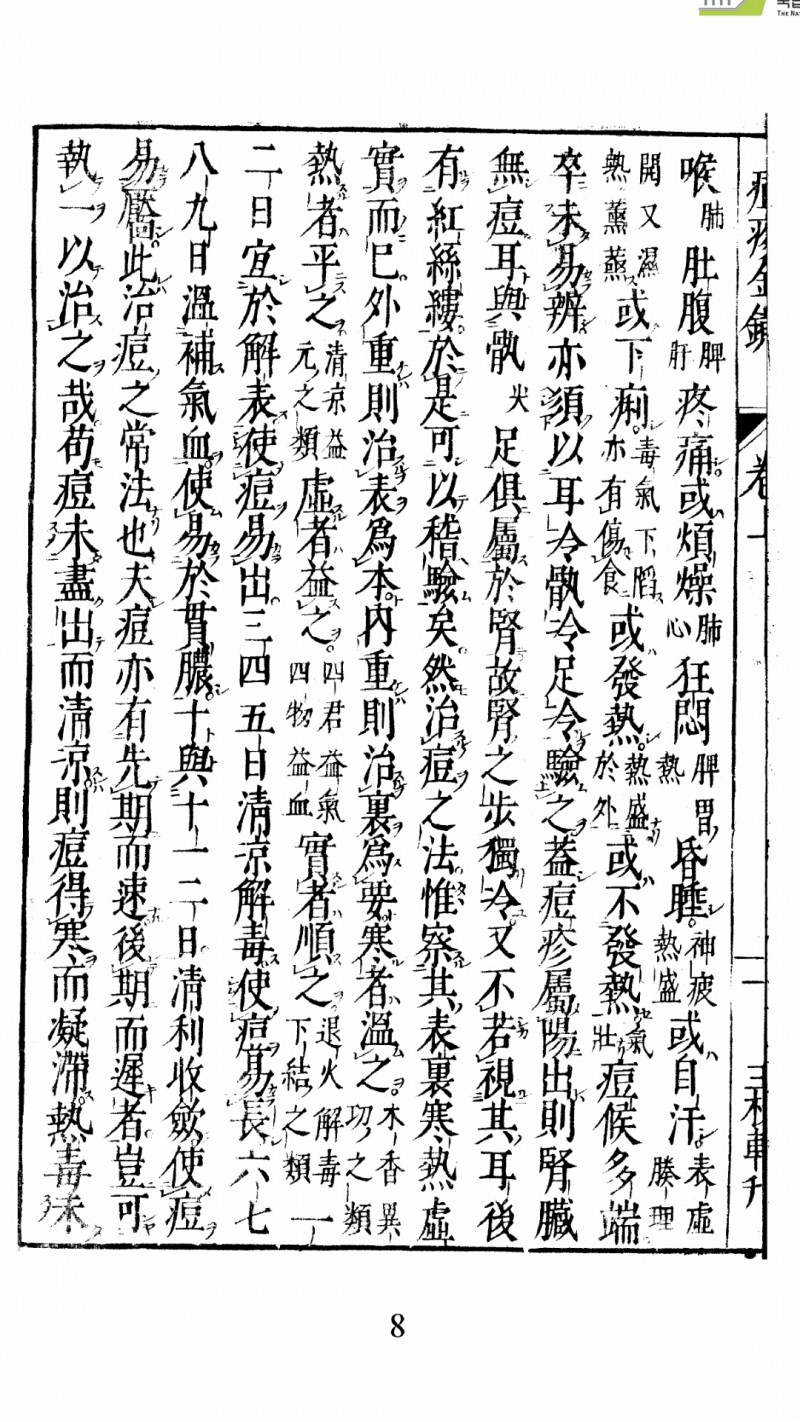 喉肺肚腹脾肝疼痛或煩燥肺心狂悶脾胃熱昏睡神疲熱盛或自汗表虛腠理
開又濕熱薰蒸或下痢毒氣下䐜亦有傷食或發熱熱盛於外或不發熱氣壯痘候多端
卒未易辨亦須以耳冷骩冷足冷驗之蓋痘疹屬陽出則腎臟
無痘耳與骩尖足俱屬於腎故腎之步獨冷又不若視其耳後
有紅絲縷於是可以稽驗矣然治痘之法惟察其表裏寒熱虛
實而已外重則治表為本內重則治裏為要寒者溫之木香異功之類
熱者平之清凉益元之類虛者益之四君益氣四物益血實者順之退火解毒下結之類一
二日宜於解表使痘易出三四五日清凉解毒使痘易長六七
八九日溫補氣血使易於貫膿十與十一二日清利收斂使痘
易靨此治痘之常法也夫痘亦有先期而速後期而遲者豈可
執一以治之哉苟痘未盡出而清凉則痘得寒而凝滯熱毒未
8